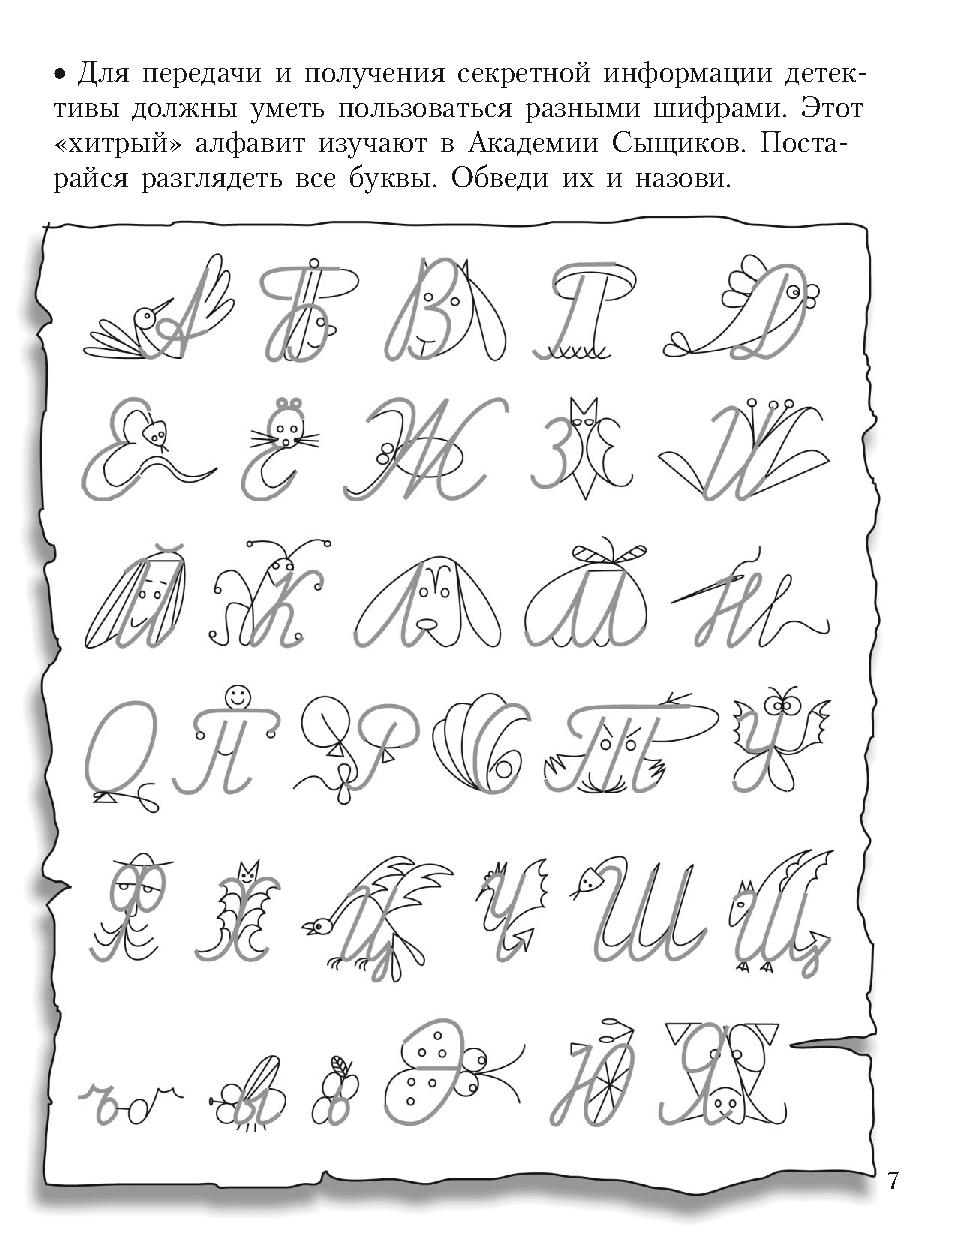 • Для передачи и получения секретной информации детек-
тивы должны уметь пользоваться разными шифрами. Этот
«хитрый» алфавит изучают в Академии Сыщиков. Поста-
райся разглядеть все буквы. Обведи их и назови.
А Б В Г Д
Е Ё Ж З И
Й К Л М Н
О П Р С Т У
Ф Х Ц Ч Ш Щ
ъ ы ь Э Ю Я
7